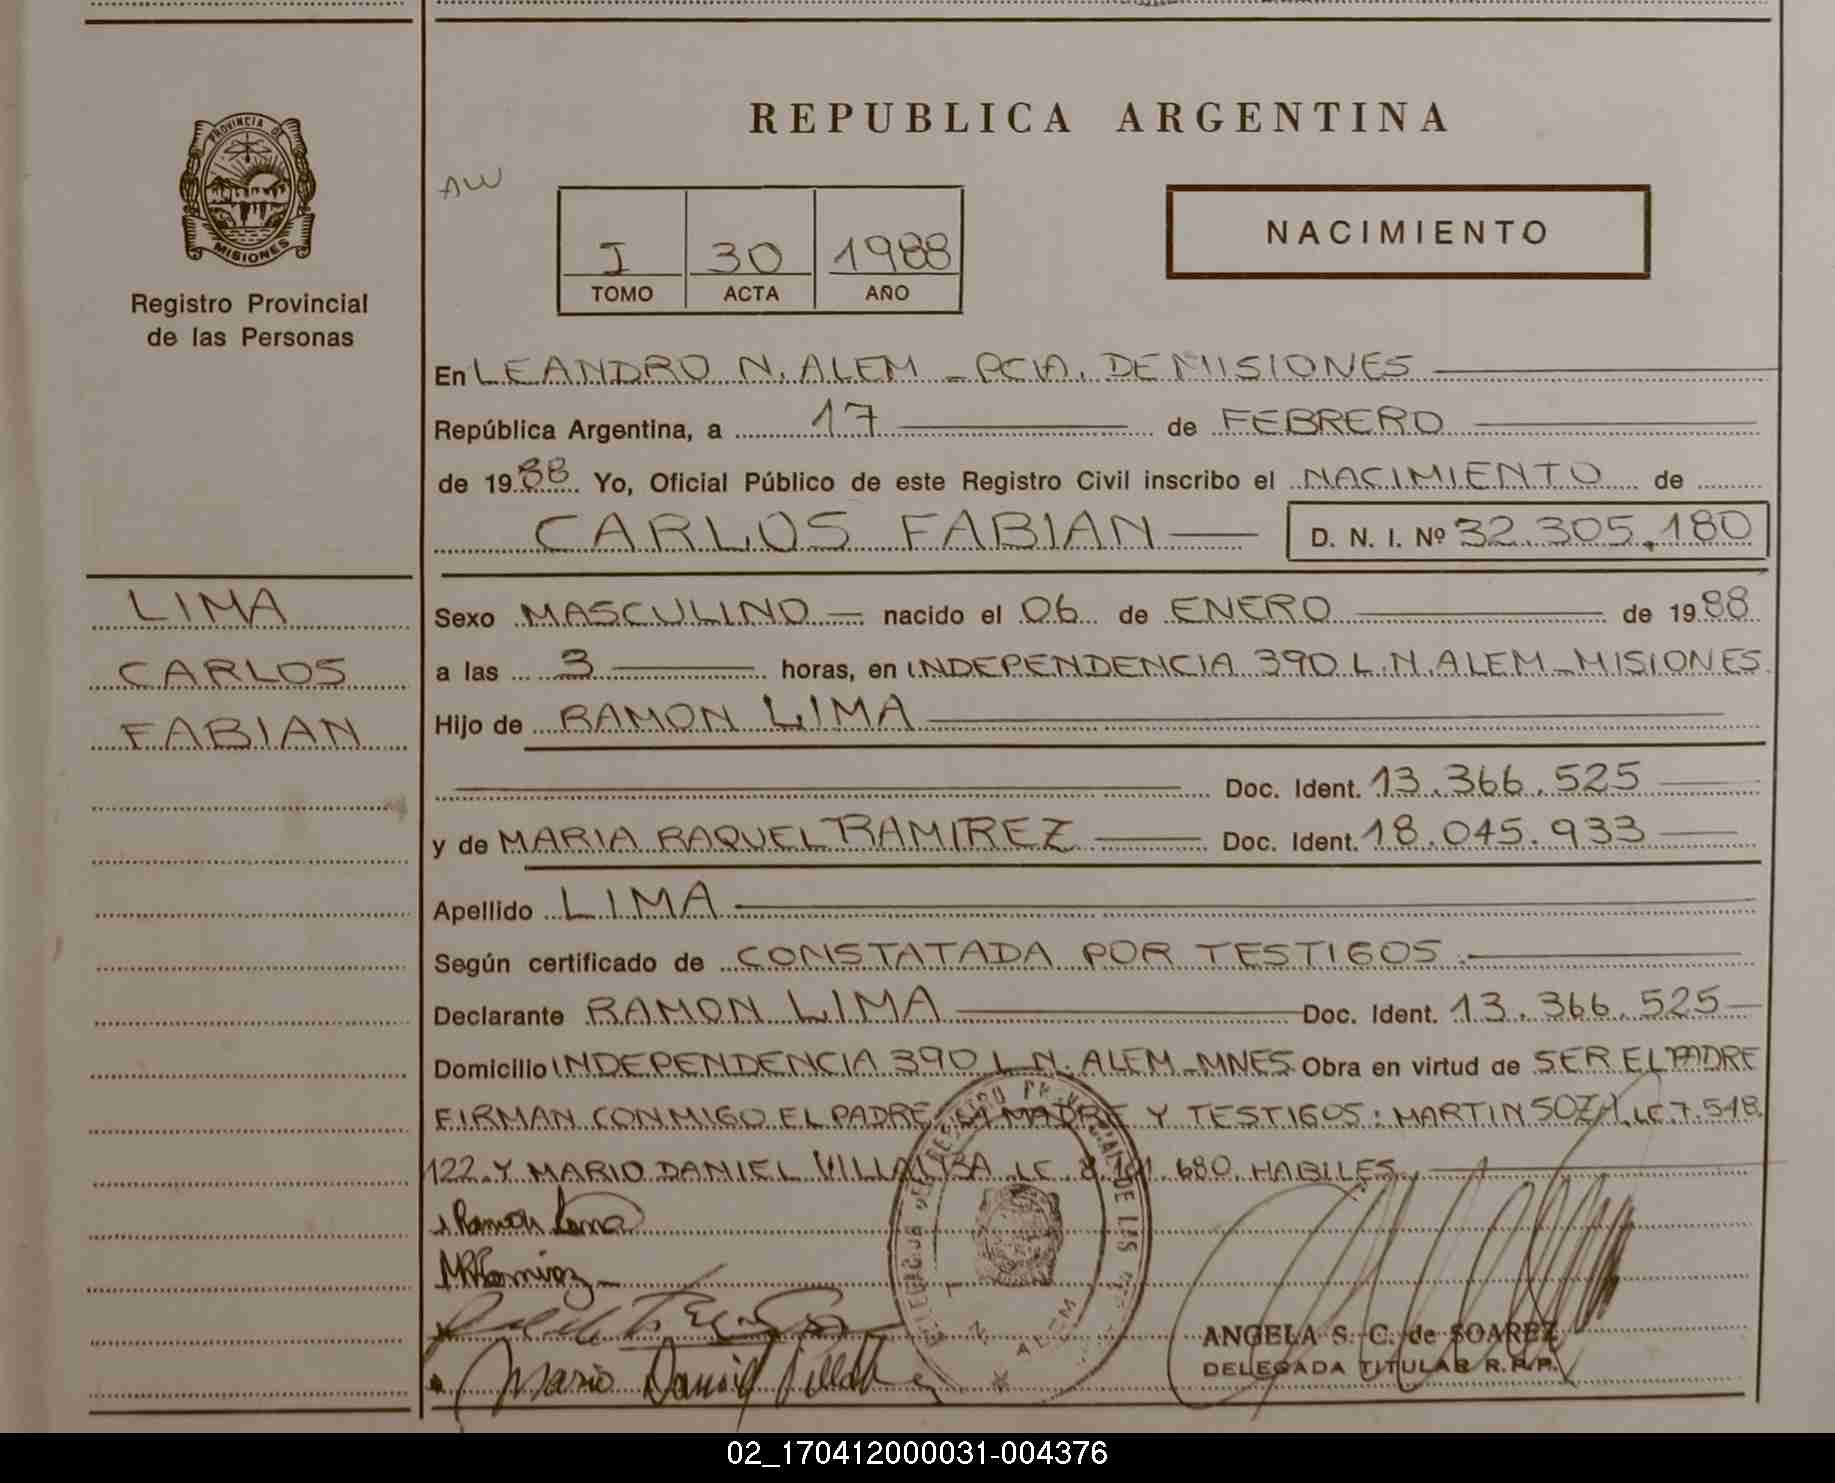 REPUBLICA ARGENTINA
PROVINCIA DE
MISIONES
Registro Provincial
de las Personas
AW
I 30 1988
TOMO ACTA AÑO
NACIMIENTO
En LEANDRO N. ALEM - PCIA. DE MISIONES
República Argentina, a 17 de FEBRERO
de 1988 Yo, Oficial Público de este Registro Civil inscribo el NACIMIENTO de
CARLOS FABIAN D. N. I. Nº 32.305.180
LIMA
CARLOS
FABIAN
Sexo MASCULINO nacido el 06 de ENERO de 1988
a las 3 horas, en INDEPENDENCIA 390 L.N. ALEM - MISIONES
Hijo de RAMON LIMA
Doc. Ident. 13.366.525
y de MARIA RAQUEL RAMIREZ Doc. Ident. 18.045.933
Apellido LIMA
Según certificado de CONSTATADA POR TESTIGOS
Declarante RAMON LIMA Doc. Ident. 13.366.525
Domicilio INDEPENDENCIA 390 L.N. ALEM - MNES Obra en virtud de SER EL PADRE
FIRMAN CONMIGO EL PADRE, LA MADRE Y TESTIGOS: MARTIN LE 7.518.
122 Y MARIO DANIEL VILLALBA LE 680. HABILES
Ramon Lima
MRRamirez
Mario Daniel
N. ALEM
ANGELA S. C. de SOAREZ
DELEGADA TITULAR R.P.P.
02_170412000031-004376